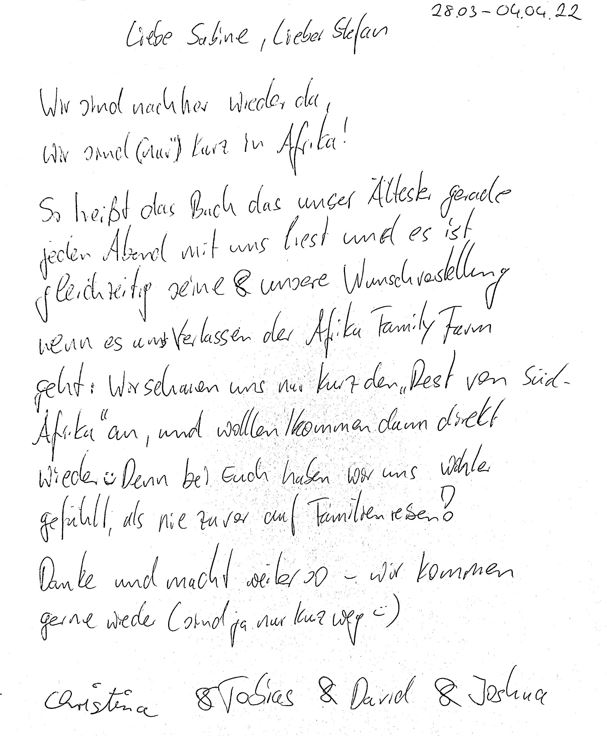 28.03 – 04.04.22
Liebe Sabine, Lieber Stefan
Wir sind nachher wieder da,
wir sind (nur) kurz in Afrika!
So heißt das Buch das unser Ältester gerade
jeden Abend mit uns liest und es ist
gleichzeitig seine & unsere Wunschvorstellung
wenn es ums Verlassen der Afrika Family Farm
geht: Wir schauen uns nur kurz den „Rest von Süd-
Afrika“ an, und wollen/kommen dann direkt
wieder :) Denn bei Euch haben wir uns wohler
gefühlt, als nie zuvor auf Familienreisen!
Danke und macht weiter so – wir kommen
gerne wieder (sind ja nur kurz weg :))
Christina & Tobias & David & Joshua